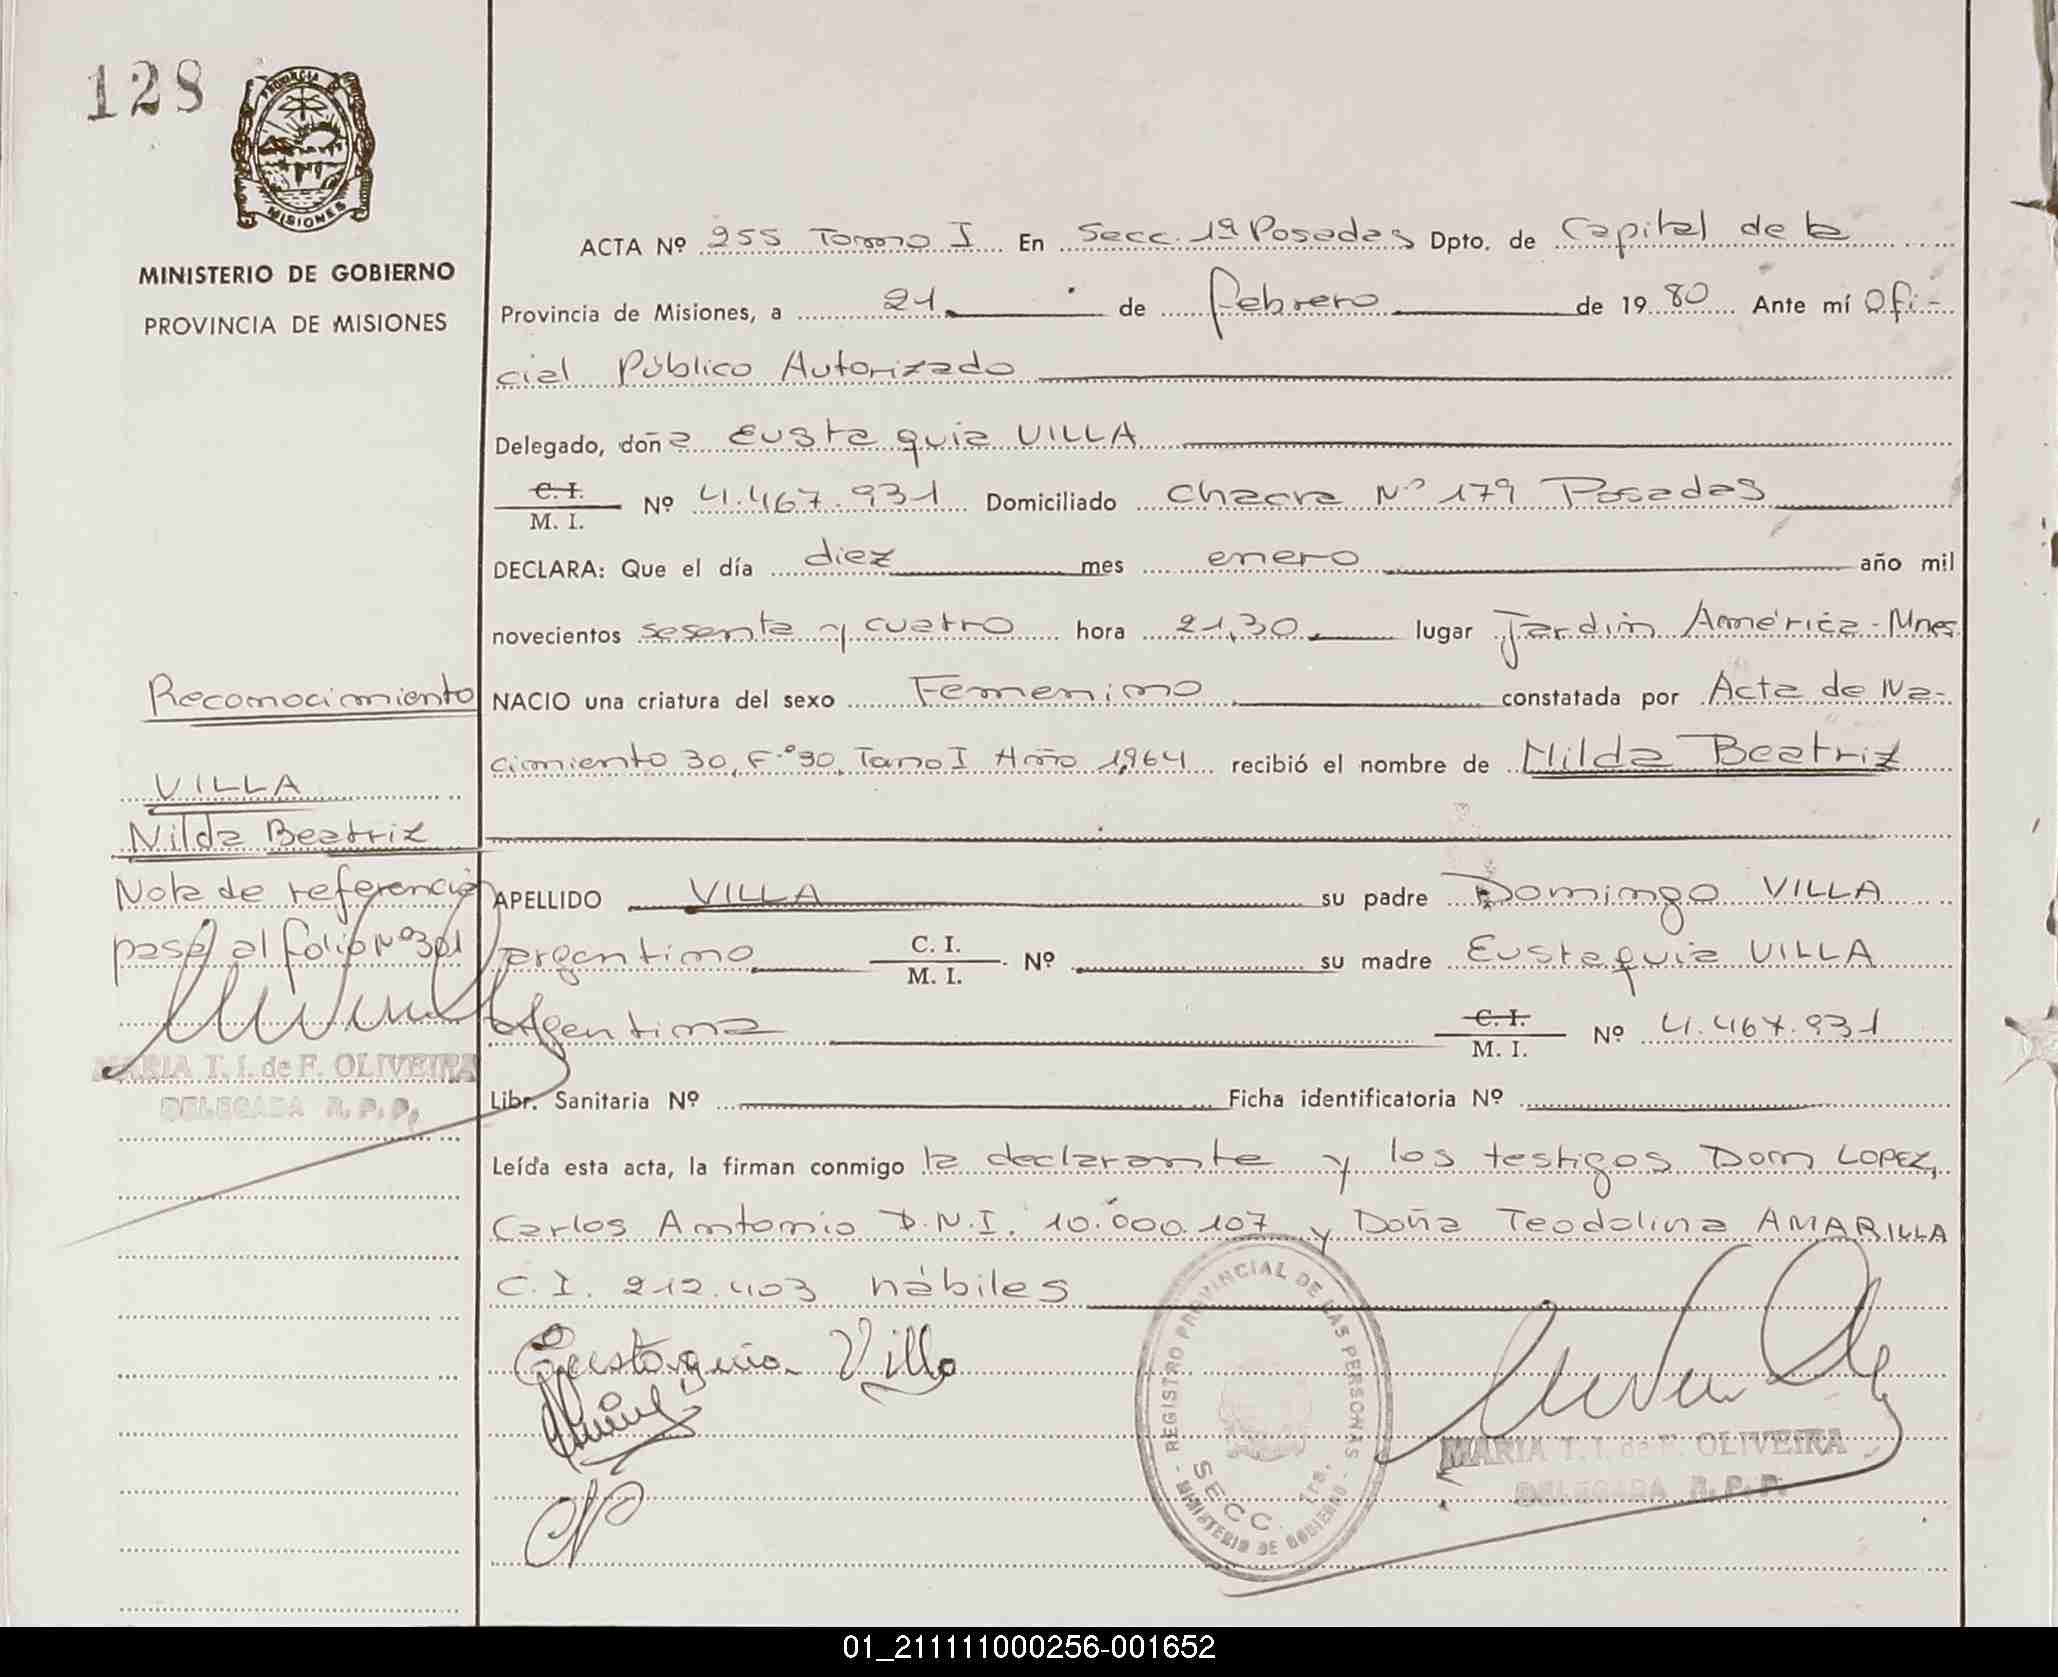 128
PROVINCIA DE
MISIONES
MINISTERIO DE GOBIERNO
PROVINCIA DE MISIONES
ACTA Nº 255 Tomo I En Secc. 1ª Posadas Dpto. de Capital de la
Provincia de Misiones, a 21 de febrero de 1980 Ante mí Ofi-
cial Público Autorizado
Delegado, doña Eustaquia VILLA
C. I.
M. I. Nº 4.467.931 Domiciliado Chacra Nº 179 Posadas
DECLARA: Que el día diez mes enero año mil
novecientos sesenta y cuatro hora 21,30 lugar Jardín América-Mnes
NACIO una criatura del sexo Femenino constatada por Acta de Na-
cimiento 30, Fº 30, Tomo I Año 1,964 recibió el nombre de Nilda Beatriz
APELLIDO VILLA su padre Domingo VILLA
argentino C. I.
M. I. Nº su madre Eustaquia VILLA
argentina C. I.
M. I. Nº 4.467.931
Libr. Sanitaria Nº Ficha identificatoria Nº
Leída esta acta, la firman conmigo la declarante y los testigos Don LOPEZ,
Carlos Antonio D.N.I. 10.000.107 y Doña Teodolina AMARILLA
C.I. 212.403 hábiles
Eustaquia Villa
Reconocimiento
VILLA
Nilda Beatriz
Nota de referencia
pasa al folio Nº 301
MARIA T. I. de F. OLIVEIRA
DELEGADA R. P. P.
REGISTRO PROVINCIAL DE LAS PERSONAS
- MINISTERIO DE GOBIERNO -
SECC. 1ra.
MARIA T. I. de F. OLIVEIRA
DELEGADA R. P. P.
01_211111000256-001652